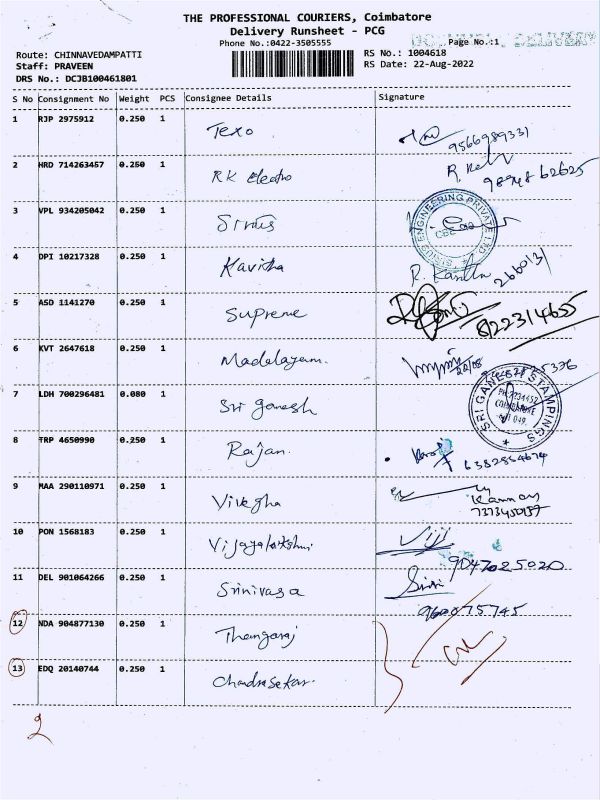 THE PROFESSIONAL COURIERS, Coimbatore
Delivery Runsheet - PCG
Phone No.:0422-3505555
Page No.:1
Route: CHINNAVEDAMPATTI
RS No.: 1004618
Staff: PRAVEEN
RS Date: 22-Aug-2022
DRS No.: DCJB100461801
S No Consignment No Weight PCS Consignee Details Signature
1 RJP 2975912 0.250 1 Texo 9566989331
2 HRD 714263457 0.250 1 RK Electro
3 VPL 934205042 0.250 1 Sirius
ENGINEERING PRIVATE LTD
CBE
4 DPI 10217328 0.250 1 Kavitha 2660131
5 ASD 1141270 0.250 1 Supreme 8122314655
6 KVT 2647618 0.250 1 Madalayam
7 LDH 700296481 0.080 1 Sri Ganesh
SRI GANESH STAMPINGS
8 TRP 4650990 0.250 1 Rajan
9 MAA 290110971 0.250 1 Vivegha
Kannan
10 PON 1568183 0.250 1 Vijayalakshmi Viji
9047025020
11 DEL 901064266 0.250 1 Srinivasa Srini
12 NDA 904877130 0.250 1 Thangaraj
13 EDQ 20140744 0.250 1 Chandrasekar.
2